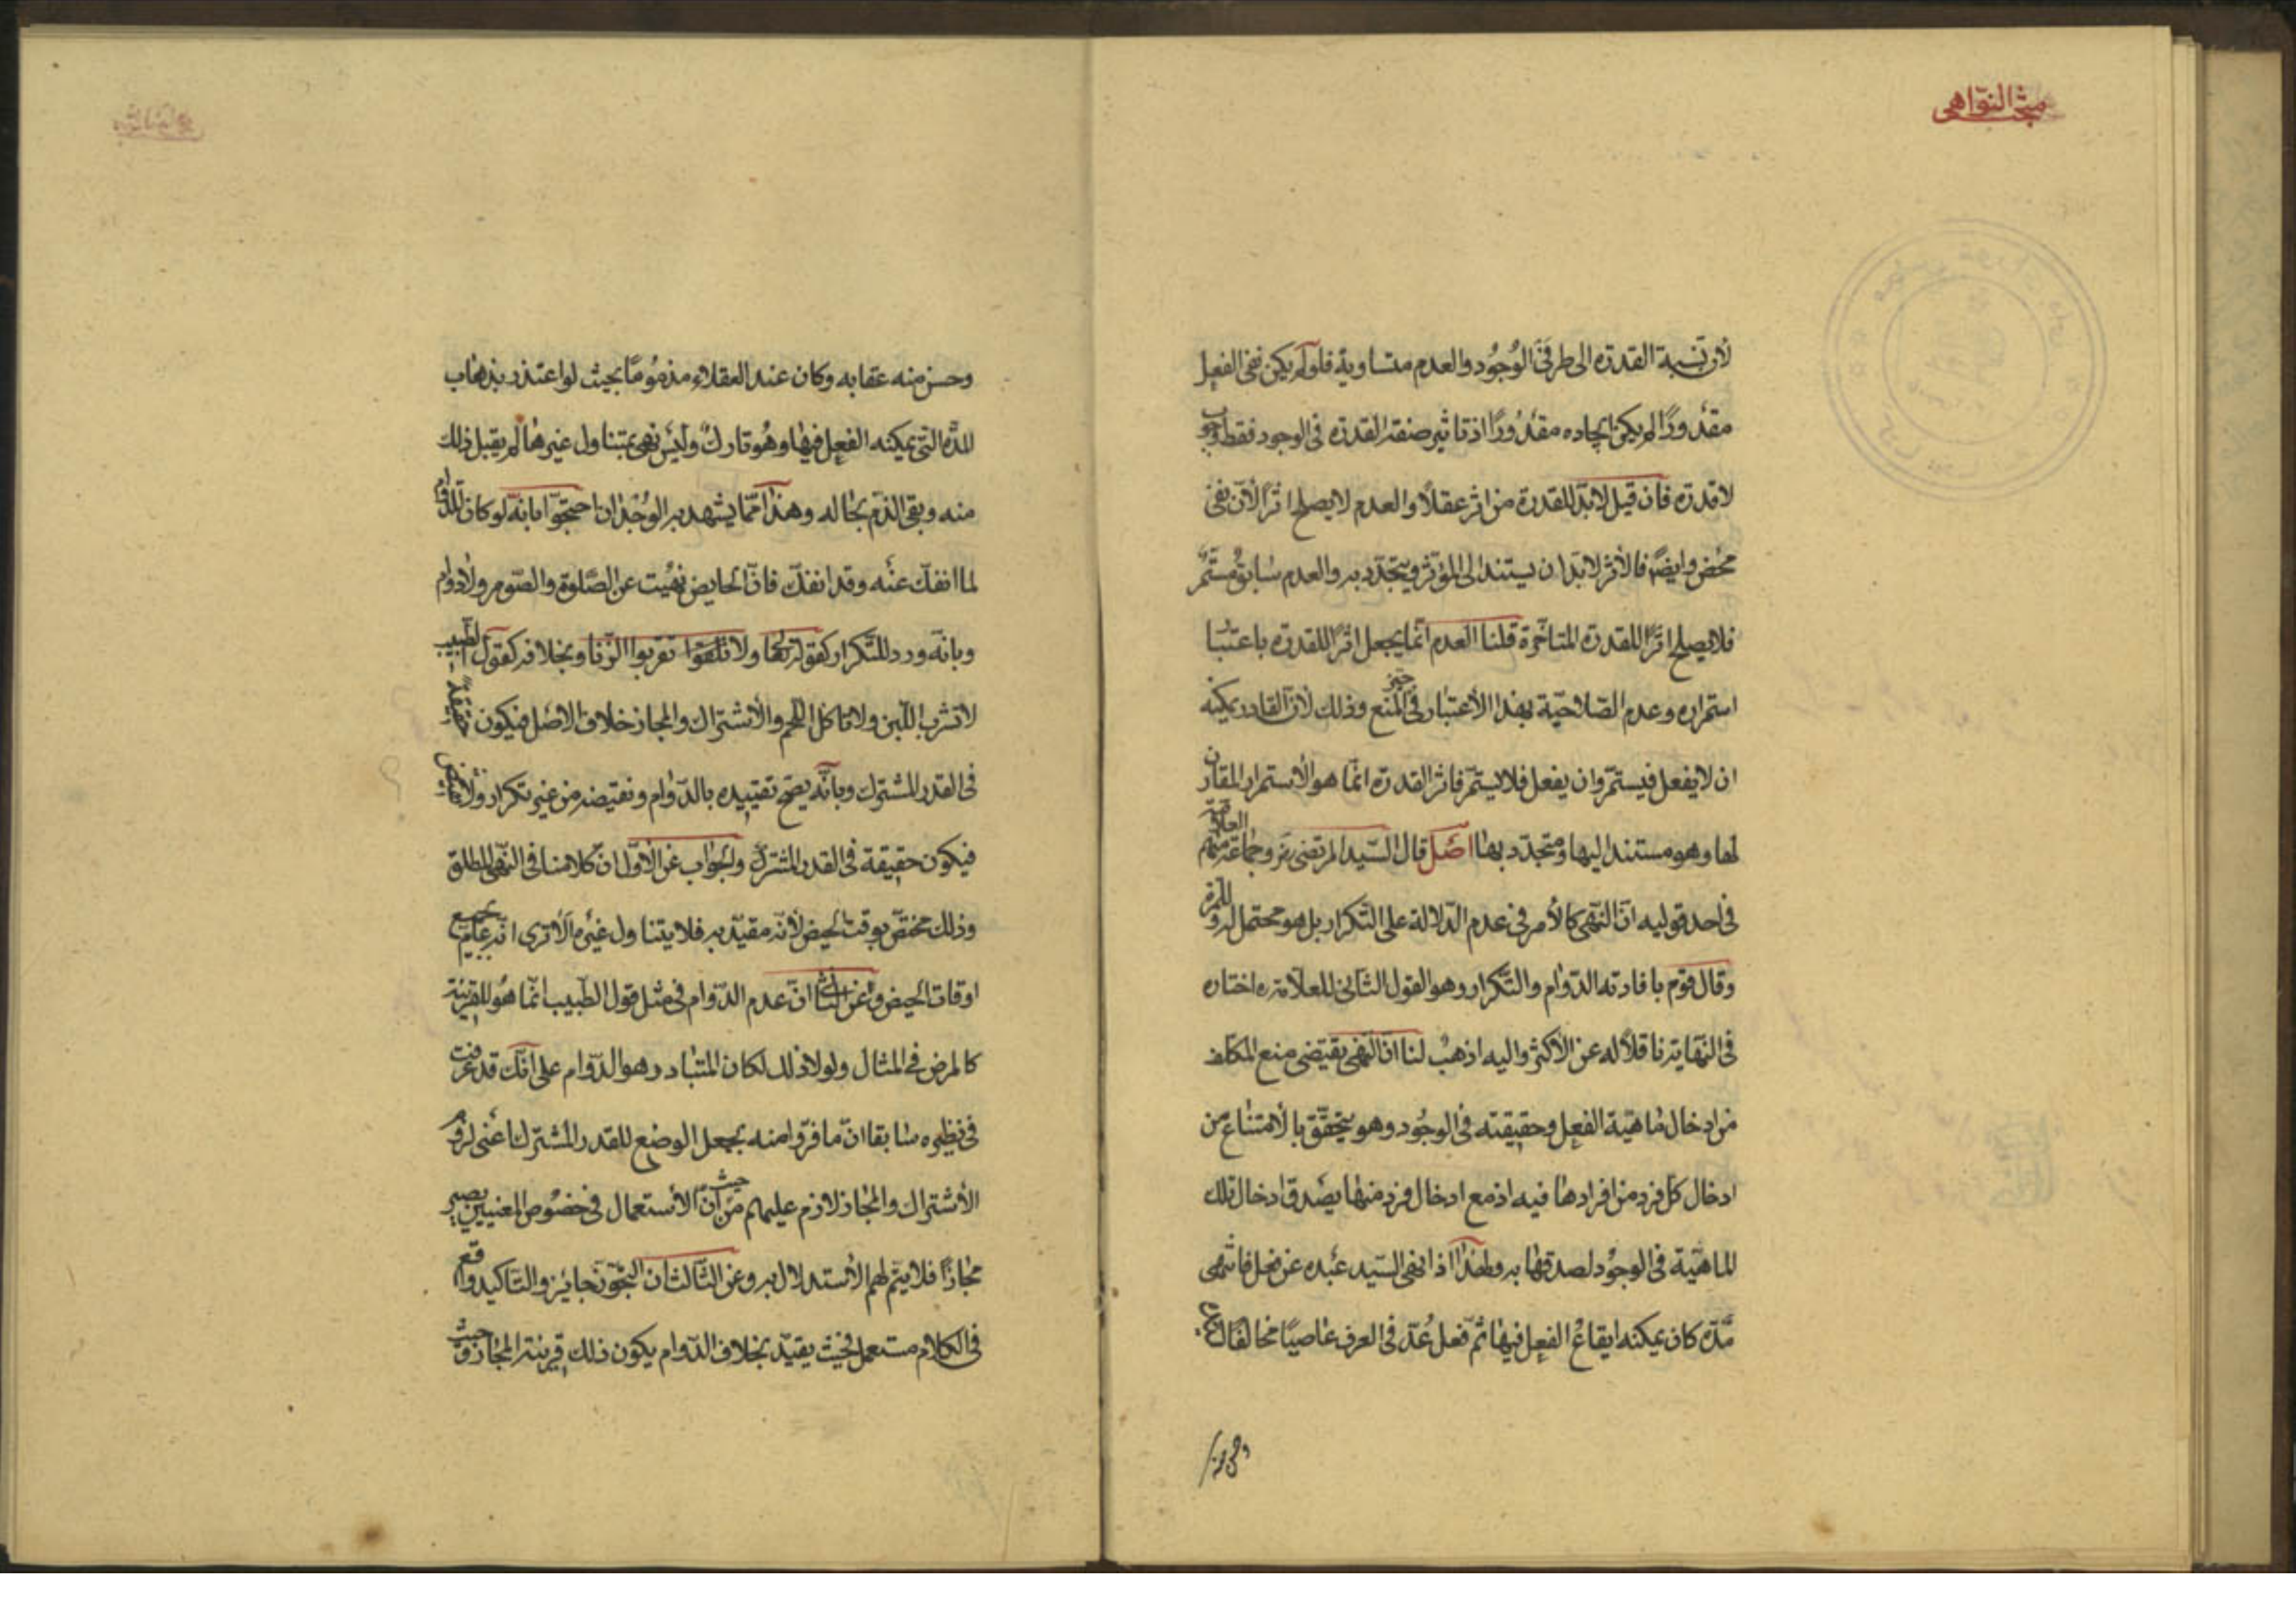 مبحث النواهى
لأن نسبة القدرة الى طرفى الوجود والعدم متساوية فلو لم يكن نفى الفعل
مقدورًا لم يكن ايجاده مقدورًا اذ تاثير صفة القدرة فى الوجود فقط وجوب
لا قدرة فان قيل لا بد للقدرة من اثر عقلًا والعدم لا يصلح اثرًا لأنه نفى
محض وايضًا فالأثر لا بد ان يستند الى المؤثر ويتجدد به والعدم سابق مستمر
فلا يصلح اثرًا للقدرة المتاخرة قلنا العدم انما يجعل اثرًا للقدرة باعتبار
استمراره وعدم الصلاحية بهذا الأعتبار فى حيز المنع وذلك لأن القادر يمكنه
ان لا يفعل فيستمر وان يفعل فلا يستمر فاثر القدرة انما هو الأستمرار المقارن
لها وهو مستند اليها ومتجدد بها اصل قال السيد المرتضى ره وجماعة منهم العلامة
فى احد قوليه ان النهى كالأمر فى عدم الدلالة على التكرار بل هو محتمل له وللمرة
وقال قوم بافادته الدوام والتكرار وهو القول الثانى للعلامة ره اختاره
فى النهاية ناقلًا له عن الأكثر واليه اذهب لنا ان النهى يقتضى منع المكلف
من ادخال ماهية الفعل وحقيقته فى الوجود وهو يتحقق بالأمتناع من
ادخال كل فرد من افرادها فيه اذ مع ادخال فرد منها يصدق ادخال تلك
الماهية فى الوجود لصدقها به ولهذا اذا نهى السيد عبده عن فعل فانتهى
مدة كان يمكنه ايقاع الفعل فيها ثم فعل عد فى العرف عاصيًا مخالفًا
وحسن منه
وحسن منه عقابه وكان عند العقلاء مذمومًا بحيث لو اعتذر بذهاب
المدة التى يمكنه الفعل فيها وهو تارك وليس نهى يتناول غيرها لم يقبل ذلك
منه وبقى الذم بحاله وهذا مما يشهد به الوجدان احتجوا بانه لو كان للدوام
لما انفك عنه وقد انفك فان الحايض نهيت عن الصلوة والصوم ولا دوام
وبانه ورد للتكرار كقوله تعالى ولا تقربوا الزنا وبخلافه كقول الطبيب
لا تشرب اللبن ولا تاكل اللحم والأشتراك والمجاز خلاف الاصل فيكون حقيقة
فى القدر المشترك وبانه يصح تقييده بالدوام ونقيضه من غير تكرار ولا نقض
فيكون حقيقة فى القدر المشترك والجواب عن الأول ان كلامنا فى النهى المطلق
وذلك مختص بوقت الحيض لأنه مقيد به فلا يتناول غيره الأ ترى انه عام لجميع
اوقات الحيض وعن الثانى ان عدم الدوام فى مثل قول الطبيب انما هو للقرينة
كالمرض فى المثال ولولا ذلك لكان المتبادر هو الدوام على انك قد عرفت
فى نظيره سابقا ان ما فروا منه بجعل الوضع للقدر المشترك اعنى لزوم
الأشتراك والمجاز لازم عليهم من حيث ان الأستعمال فى خصوص المعنيين يصير
مجازًا فلا يتم لهم الأستدلال به وعن الثالث ان التجوز جايز والتاكيد واقع
فى الكلام مستعمل فحيث يقيد بخلاف الدوام يكون ذلك قرينة المجاز وحيث